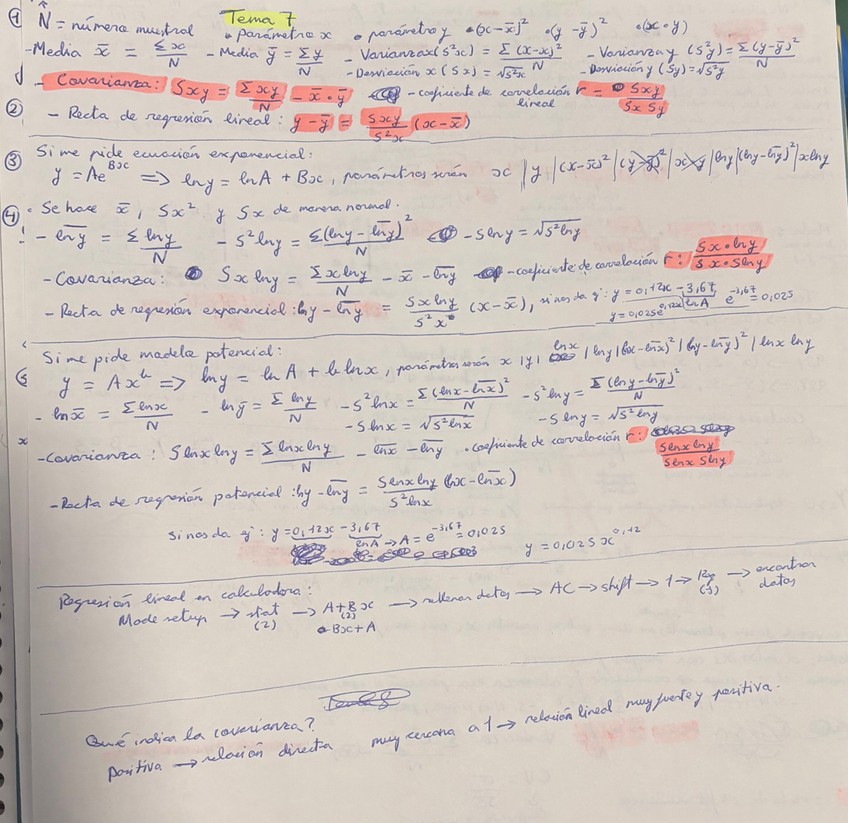 ① N̂ = número muestral Tema 7
• parámetro x • parámetro y •(x-x̄)² •(y-ȳ)² •(x·y)
-Media x̄ = Σx/N - Media ȳ = Σy/N - Varianza x (S²x) = Σ(x-x̄)²/N - Varianza y (S²y) = Σ(y-ȳ)²/N
-Desviación x (Sx) = √S²x - Desviación y (Sy) = √S²y
- Covarianza: Sxy = Σxy/N - x̄·ȳ - coeficiente de correlación lineal r = Sxy/Sx Sy
② - Recta de regresión lineal: y-ȳ = Sxy/S²x (x-x̄)
③ Si me pide ecuación exponencial:
y = Ae^Bx => ln y = ln A + Bx, parámetros serán x | y | (x-x̄)² | (y-ȳ)² | x·y | ln y | (ln y - ln̄y)² | x ln y
④ • Se hace x̄, Sx² y Sx de manera normal.
- ln̄y = Σ ln y/N - S² ln y = Σ(ln y - ln̄y)²/N - S ln y = √S² ln y
- Covarianza: S x ln y = Σ x ln y/N - x̄ - ln̄y - coeficiente de correlación r: Sx·ln y/Sx·S ln y
- Recta de regresión exponencial: ln y - ln̄y = S x ln y/S² x (x-x̄), si nos da ej: y = 0,12x - 3,67 ln A e^-3,67 = 0,025
y = 0,025e^0,12x
Si me pide modelo potencial:
⑤ y = Ax^b => ln y = ln A + b ln x, parámetros serán x | y | ln x | ln y | (ln x - ln̄x)² | (ln y - ln̄y)² | ln x ln y
- ln x̄ = Σ ln x/N - ln ȳ = Σ ln y/N - S² ln x = Σ(ln x - ln̄x)²/N - S² ln y = Σ(ln y - ln̄y)²/N
- S ln x = √S² ln x - S ln y = √S² ln y
- Covarianza: S ln x ln y = Σ ln x ln y/N - ln̄x - ln̄y • coeficiente de correlación r: S ln x ln y/S ln x S ln y
- Recta de regresión potencial: ln y - ln̄y = S ln x ln y/S² ln x (ln x - ln̄x)
Si nos da ej: y = 0,12x - 3,67 ln A → A = e^-3,67 = 0,025 y = 0,025 x^0,12
Regresión lineal en calculadora:
Mode setup → stat (2) → A+Bx (2) → rellenar datos → AC → shift → 1 → Reg (5) → encontrar datos
•Bx+A
Qué indica la covarianza?
positiva → relación directa muy cercana a 1 → relación lineal muy fuerte y positiva.